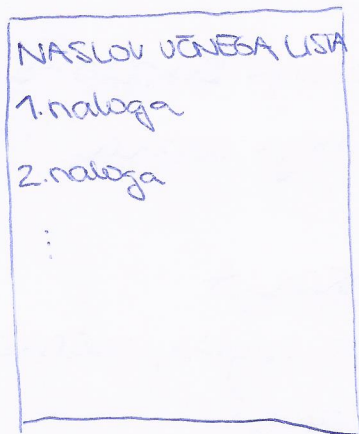 NASLOV UČNEGA LISTA
1. naloga
2. naloga
⋮